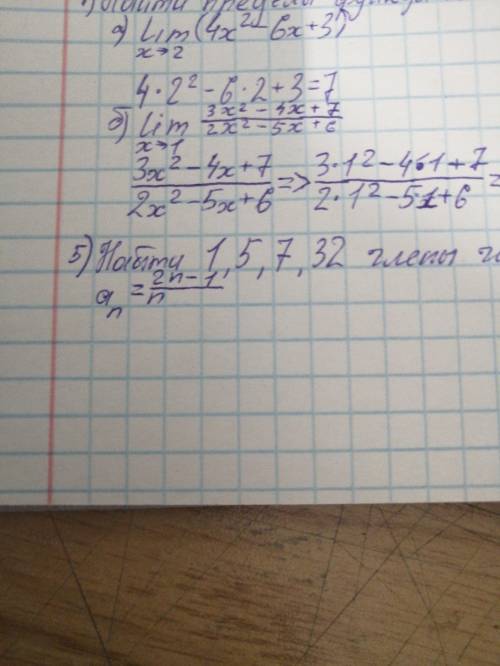 Найти пределы
а) Lim (4x² - 6x + 3)
x→2
4·2² - 6·2 + 3 = 7
б) Lim (3x² - 4x + 7)/(2x² - 5x + 6)
x→1
(3x² - 4x + 7)/(2x² - 5x + 6) => (3·1² - 4·1 + 7)/(2·1² - 51 + 6) =
5) Найти 1, 5, 7, 32 члены
aₙ = (2n - 1)/n